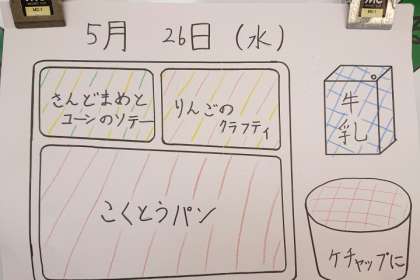 5月 26日 (水)
さんどまめと
コーンのソテー
りんごの
クラフティ
牛
乳
こくとうパン
ケチャップに